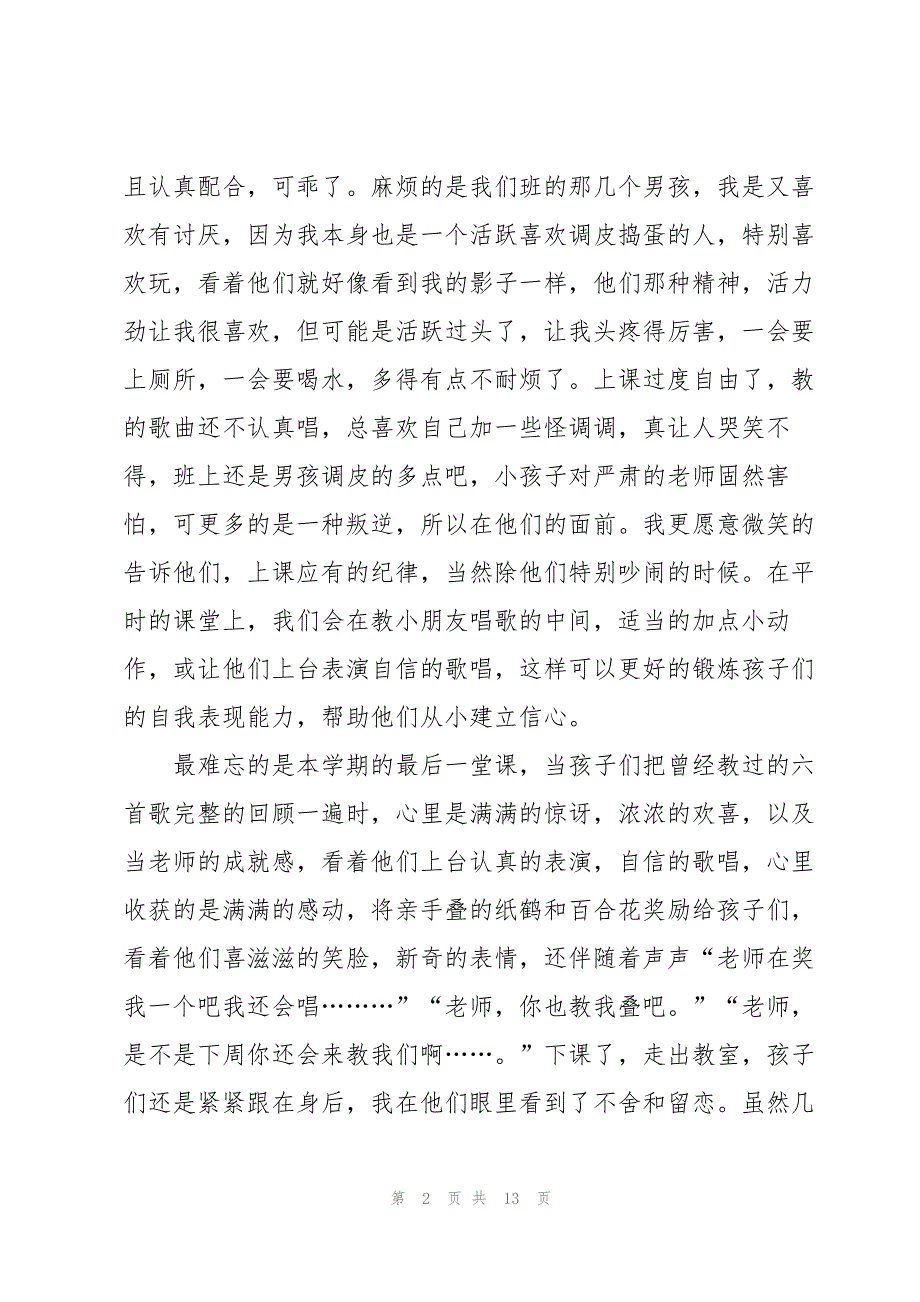 且认真配合，可乖了。麻烦的是我们班的那几个男孩，我是又喜
欢有讨厌，因为我本身也是一个活跃喜欢调皮捣蛋的人，特别喜
欢玩，看着他们就好像看到我的影子一样，他们那种精神，活力
劲让我很喜欢，但可能是活跃过头了，让我头疼得厉害，一会要
上厕所，一会要喝水，多得有点不耐烦了。上课过度自由了，教
的歌曲还不认真唱，总喜欢自己加一些怪调调，真让人哭笑不
得，班上还是男孩调皮的多点吧，小孩子对严肃的老师固然害
怕，可更多的是一种叛逆，所以在他们的面前。我更愿意微笑的
告诉他们，上课应有的纪律，当然除他们特别吵闹的时候。在平
时的课堂上，我们会在教小朋友唱歌的中间，适当的加点小动
作，或让他们上台表演自信的歌唱，这样可以更好的锻炼孩子们
的自我表现能力，帮助他们从小建立信心。
最难忘的是本学期的最后一堂课，当孩子们把曾经教过的六
首歌完整的回顾一遍时，心里是满满的惊讶，浓浓的欢喜，以及
当老师的成就感，看着他们上台认真的表演，自信的歌唱，心里
收获的是满满的感动，将亲手叠的纸鹤和百合花奖励给孩子们，
看着他们喜滋滋的笑脸，新奇的表情，还伴随着声声“老师在奖
我一个吧我还会唱………”“老师，你也教我叠吧。”“老师，
是不是下周你还会来教我们啊……。”下课了，走出教室，孩子
们还是紧紧跟在身后，我在他们眼里看到了不舍和留恋。虽然几
第 2 页 共 13 页